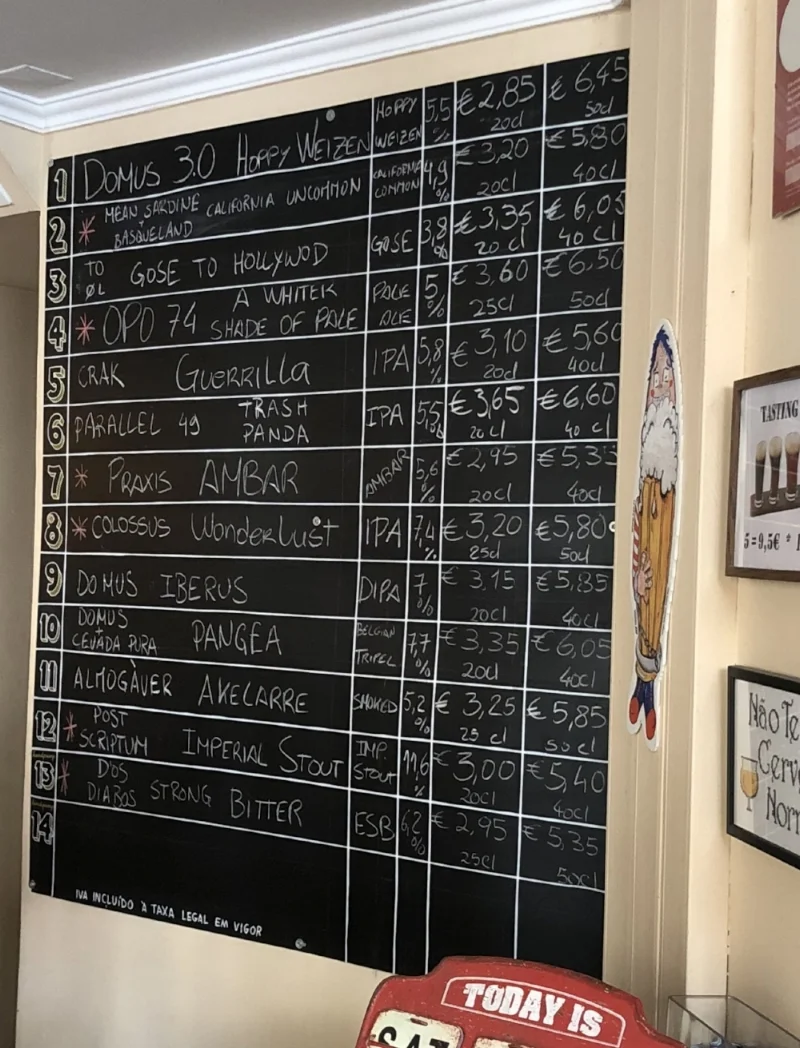 1 DOMUS 3.0 HOPPY WEIZEN HOPPY WEIZEN 5,5% €2,85 20cl €6,45 50cl
2 * MEAN SARDINE BASQUELAND CALIFORNIA UNCOMMON CALIFORNIA COMMON 4,9% €3,20 20cl €5,80 40cl
3 TO ØL GOSE TO HOLLYWOD GOSE 3,8% €3,35 20 cl €6,05 40 cl
4 * OPO 74 A WHITER SHADE OF PALE PALE ALE 5% €3,60 25cl €6,50 50cl
5 CRAK GUERRILLA IPA 5,8% €3,10 20cl €5,60 40cl
6 PARALLEL 49 TRASH PANDA IPA 5,5% €3,65 20cl €6,60 40 cl
7 * PRAXIS AMBAR AMBAR 5,6% €2,95 20cl €5,35 40cl
8 * COLOSSUS WonderLust IPA 7,4% €3,20 25cl €5,80 50cl
9 DOMUS IBERUS DIPA 7% €3,15 20cl €5,85 40cl
10 DOMUS CEVADA PURA PANGEA BELGIAN TRIPEL 7,7% €3,35 20cl €6,05 40cl
11 ALMOGÀVER AKELARRE SMOKED 5,2% €3,25 25 cl €5,85 50cl
12 * POST SCRIPTUM IMPERIAL STOUT IMP. STOUT 11,6% €3,00 20cl €5,40 40cl
13 * DOS DIABOS STRONG BITTER ESB 6,2% €2,95 25cl €5,35 50cl
14
IVA INCLUÍDO À TAXA LEGAL EM VIGOR
TODAY IS
SAT
TASTING
5=9,5€ *
Não Te
Cerve
Nor